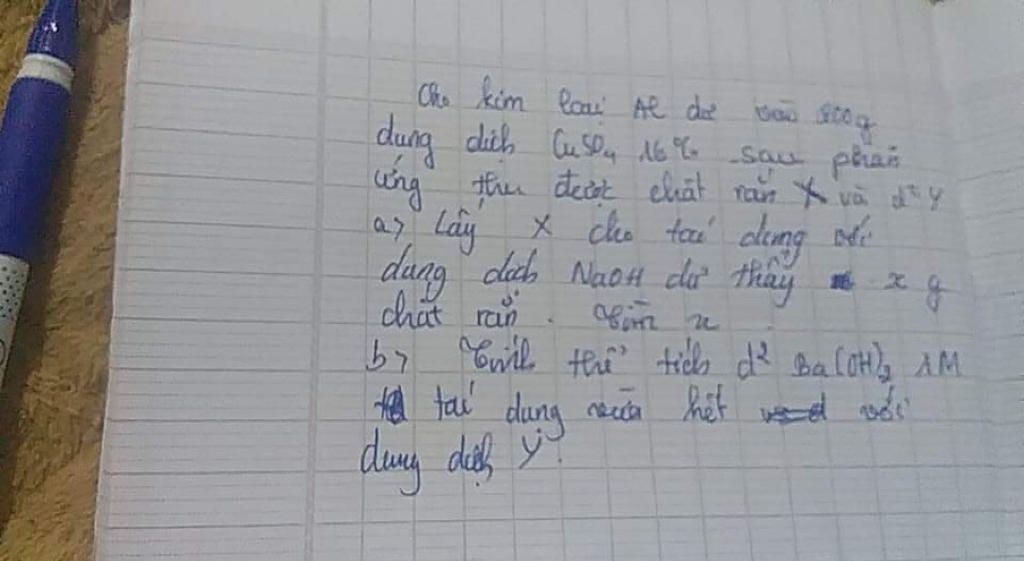 Cho kim loại Al dư vào 200g
dung dịch CuSO4 16% sau phản
ứng thu được chất rắn X và d² Y
a> Lấy X cho tác dụng với
dung dịch NaOH dư thấy x g
chất rắn. Tìm x
b> Tính thể tích d² Ba(OH)2 1M
tác dụng vừa hết với
dung dịch Y.